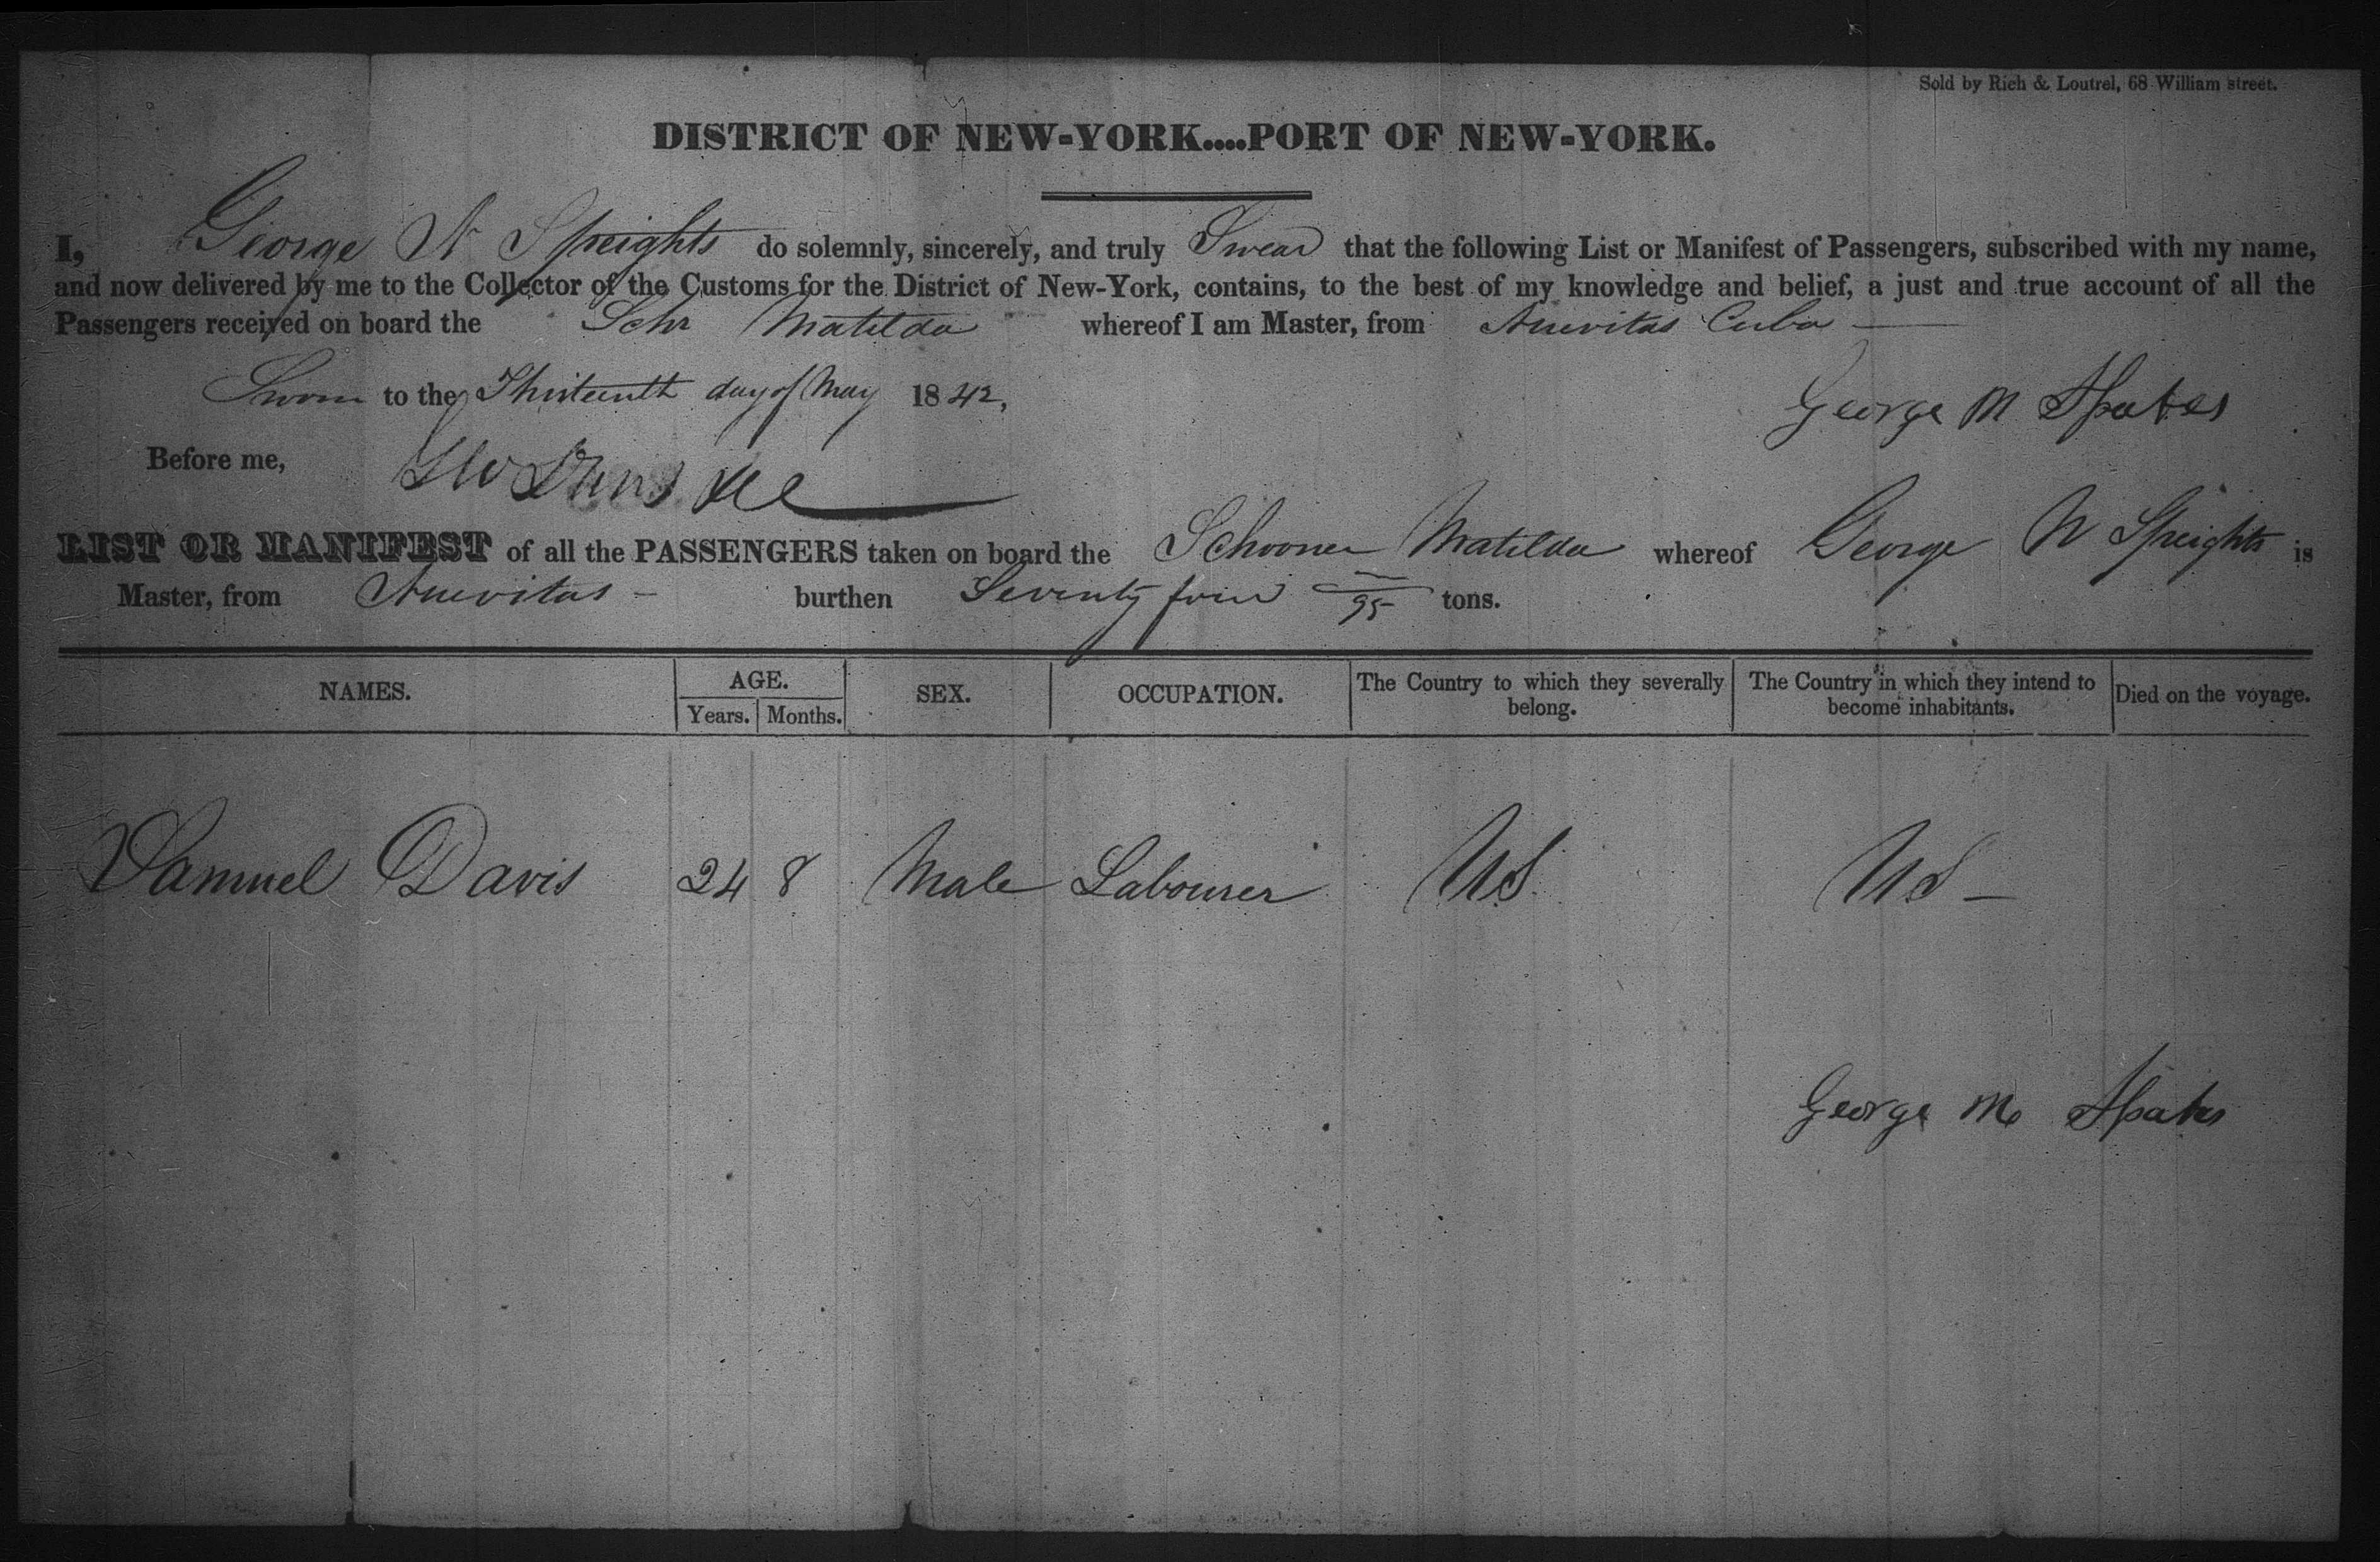 Sold by Rich & Loutrel, 68 William street.
DISTRICT OF NEW-YORK....PORT OF NEW-YORK.
I, George N Speights do solemnly, sincerely, and truly Swear that the following List or Manifest of Passengers, subscribed with my name,
and now delivered by me to the Collector of the Customs for the District of New-York, contains, to the best of my knowledge and belief, a just and true account of all the
Passengers received on board the Schr Matilda whereof I am Master, from Nuevitas Cuba
Sworn to the Thirteenth day of May 1842,
George M Spates
Before me,
LIST OR MANIFEST of all the PASSENGERS taken on board the Schooner Matilda whereof George N Speights is
Master, from Nuevitas burthen Seventy four /95 tons.
NAMES. AGE. SEX. OCCUPATION. The Country to which they severally belong. The Country in which they intend to become inhabitants. Died on the voyage.
Years. Months.
Samuel Davis 24 8 Male Labourer US US
George M Spates